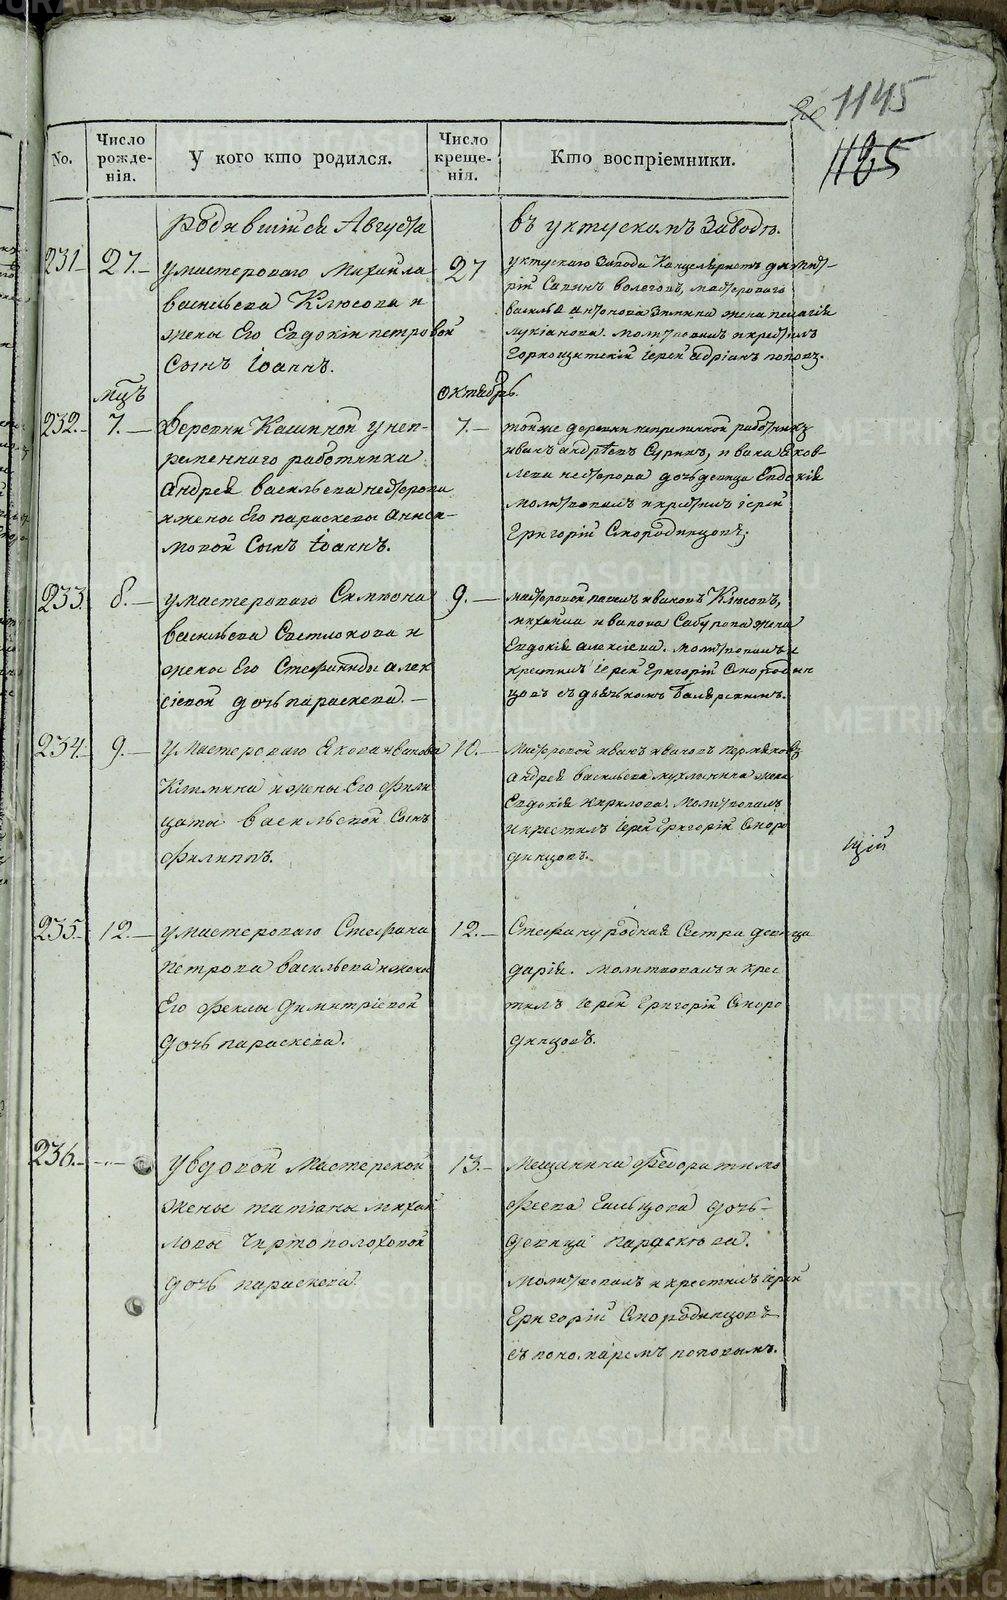 1145
1165
No.
Число рожде-нія.
У кого кто родился.
Число креще-нія.
Кто воспріемники.
родившійся Августа
въ уктускомъ Заводѣ.
231
27.
умастероваго Михайла
васильева Клюсова и
жены Его Евдокіи петровой
Сынъ Іоаннъ.
27
уктускаго Завода Канцеляристъ димит-
рій Савинъ Волеговъ, мастероваго
василья антонова Зимина жена пелагія
лукіанова. молитвовалъ и крестилъ
Горнощитскій Іерей адріанъ поповъ.
мцъ
октябрь.
232.
7.
деревни Кашиной у неп-
ременнаго работника
Андрея васильева
и жены Его параскевы Аниси-
мовой Сынъ Іоаннъ.
7.
тойже деревни непременной работникъ
иванъ андреевъ Суринъ, ивана Яков-
лева дочь девица Евдокія
молитвовалъ и крестилъ іерей
Григорій Смородинцовъ.
233.
8.
умастероваго Симеона
васильева Светлакова и
жены Его Стефаниды алек
сіевой дочь параскева.
9.
мастеровой павелъ ивановъ Клюсовъ,
михаила иванова Сабурова жена
Евдокія алексіева. молитвовалъ и
крестилъ Іерей Григорій Смородин
цовъ съ дьячькомъ
234.
9.
умастероваго Якова иванова
и жены Его Фили
цаты васильевой Сынъ
Филиппъ.
10.
мастеровой иванъ ивановъ пермяковъ
андрея васильева мухлынина жена
Евдокія кирилова. молитвовалъ
и крестилъ Іерей Григорій Сморо
динцовъ.
цій
235.
12.
умастероваго Стефана
петрова васильева и жены
Его Феклы Димитріевой
дочь параскева.
12.
Стефану родная Сестра девица
дарія. молитвовалъ и крес
тилъ Іерей Григорій Сморо
динцовъ.
236.
увдовой мастерской
жены татіаны михай
ловы Чертополоховой
дочь параскева.
13.
Мещанина Феодора тимо
феева Ельцова дочь
девица параскюва.
молитвовалъ и крестилъ іерей
Григорій Смородинцовъ
съ пономаремъ поповымъ.
METRIKI.GASO-URAL.RU